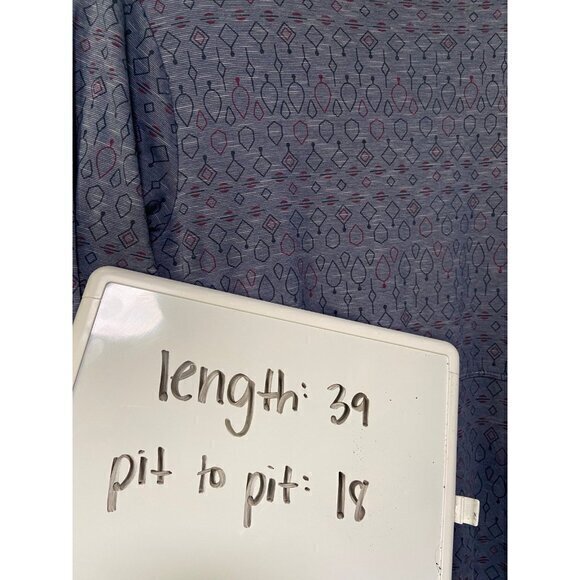 length: 39
pit to pit: 18